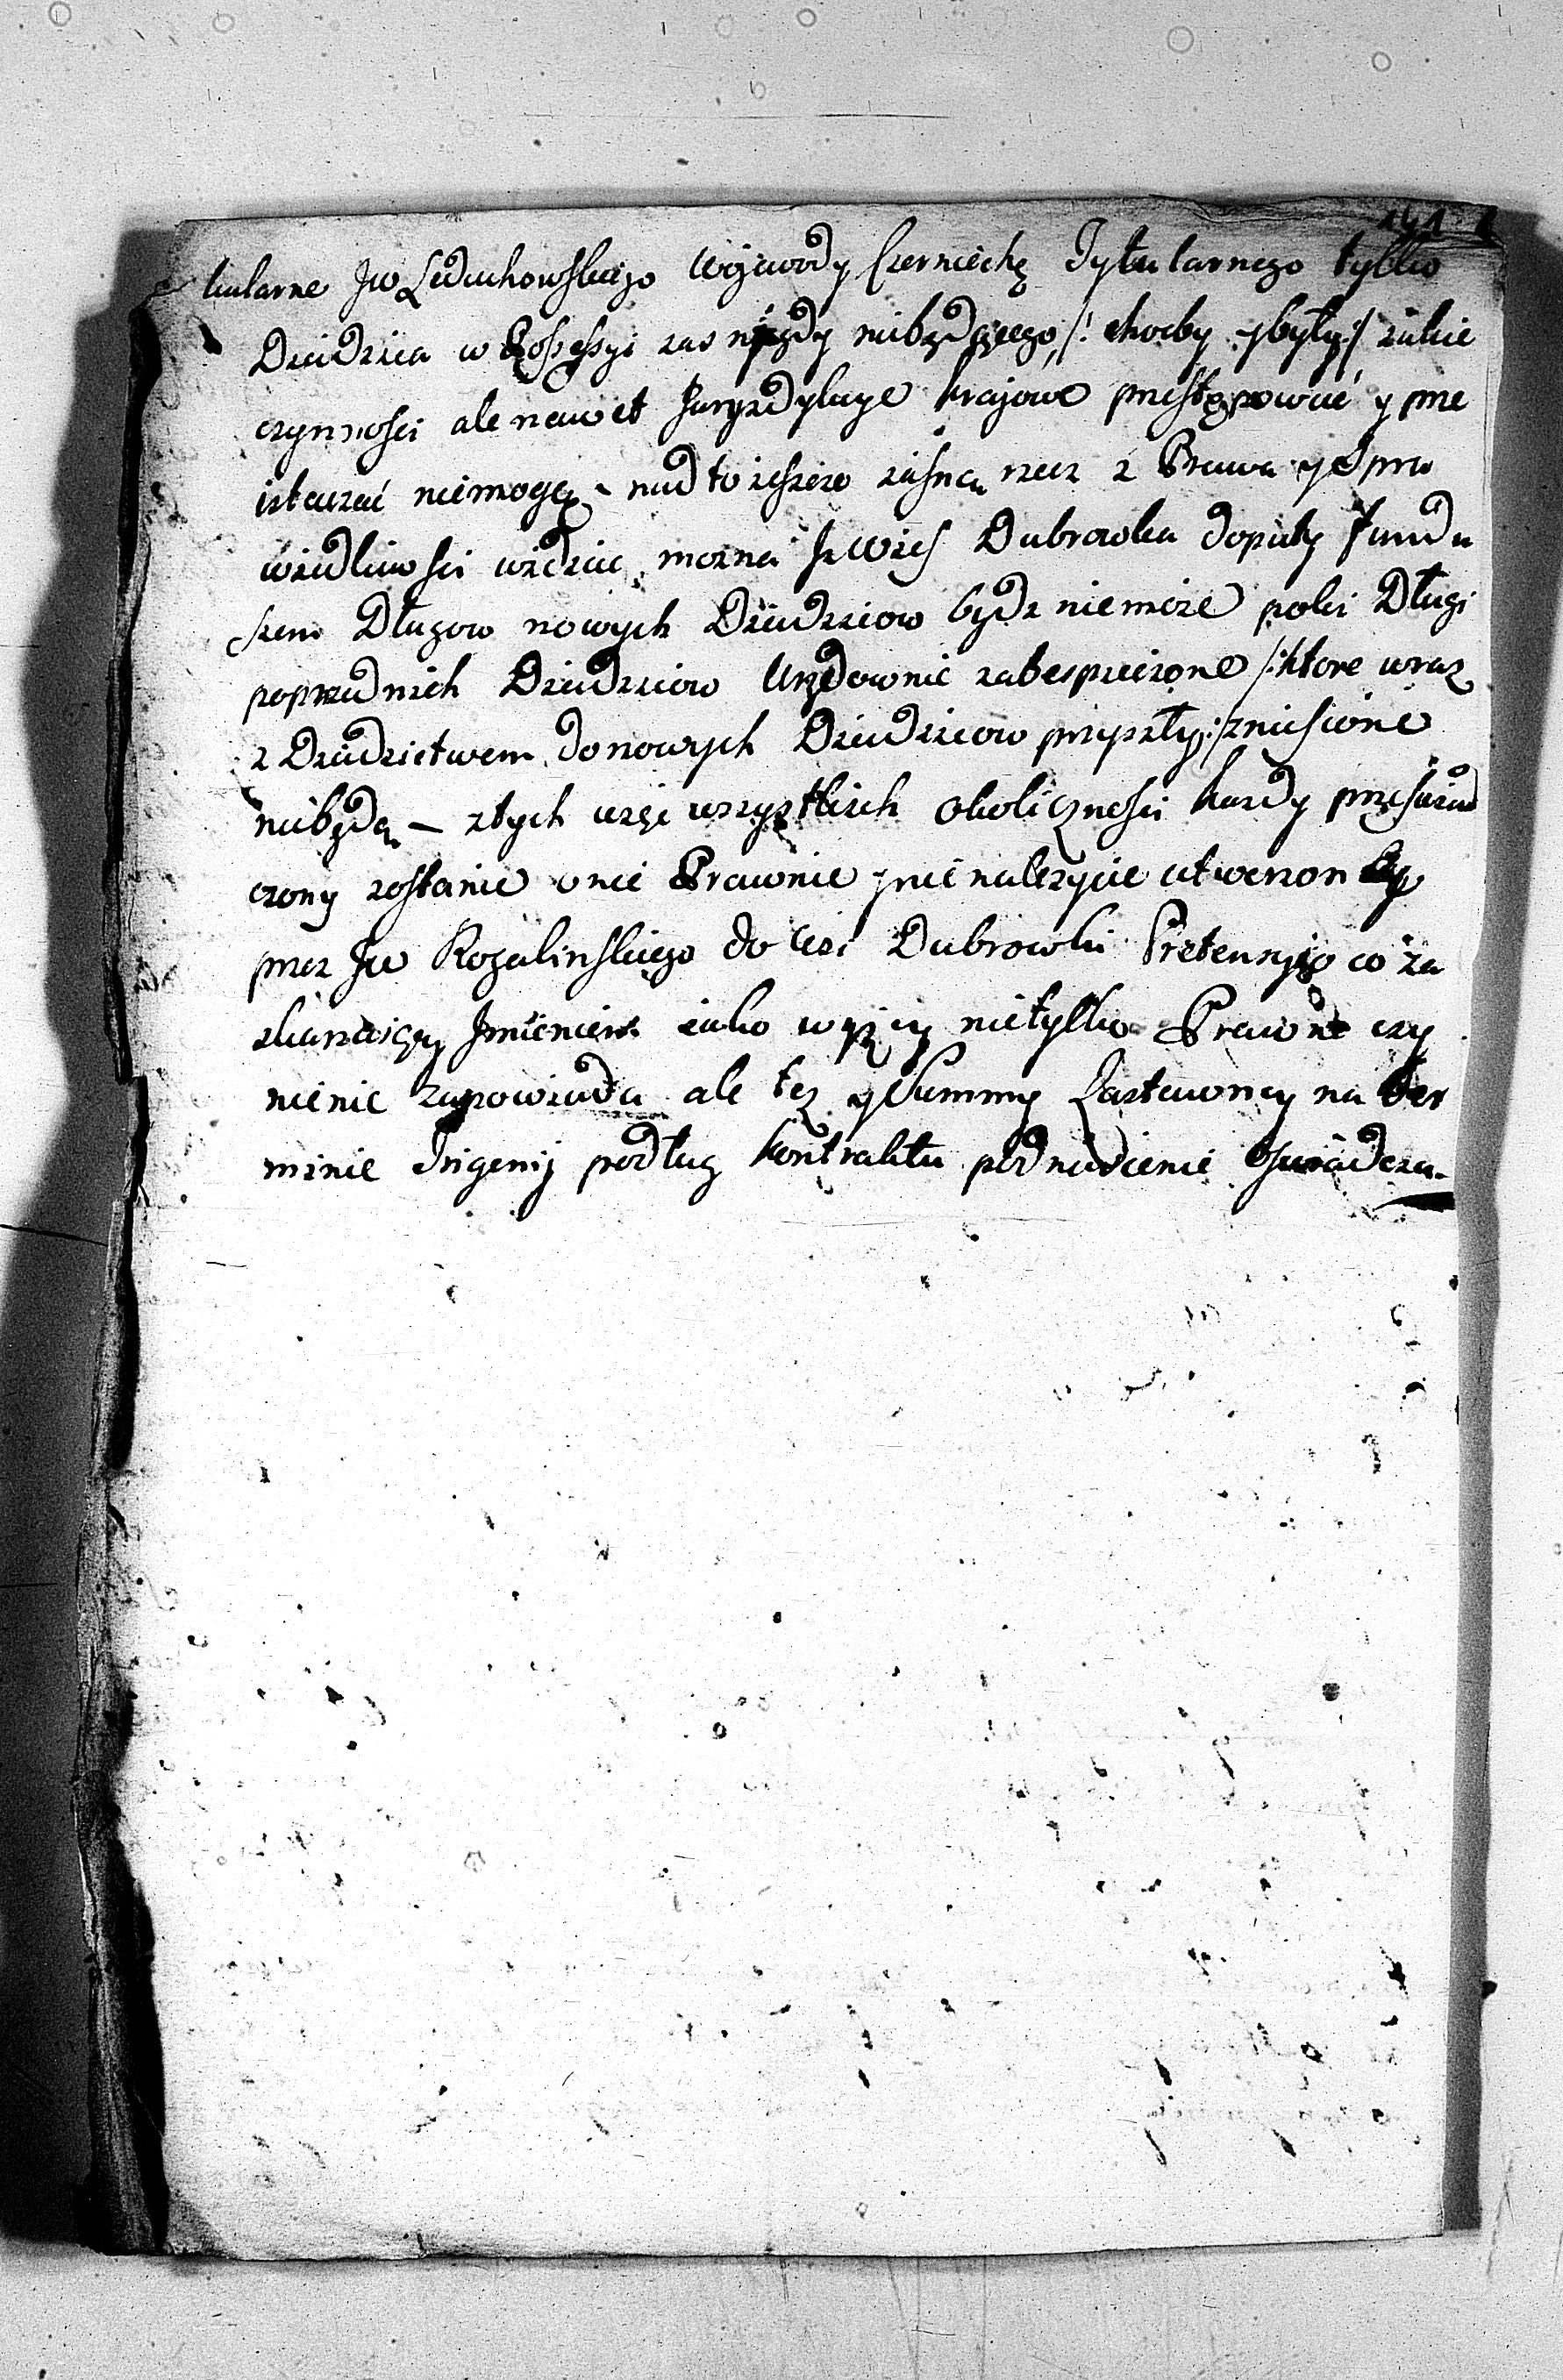 141
kularne Jw Leduchowskiego Wojewody Czerniechę Tytularnego tylko
Dziedzica w Possessyi zas nigdy niebędącego /: choćby y były :/ iakie
czynności ale nawet Juryzdykcye krajowe przestępować y prze
istaczać niemogą – nad to ieszcze iasną rzecz z Prawa y Spra
wiedliwości widzieć można iż Wieś Dubrowka dopóty fundu
szem Długow nowych Dziedziców bydz niemoże poki Długi
poprzednich Dziedziców Urzędownie zabespieczone /: ktore wraz
z Dziedzictwem do nowych Dziedziców przyszły :/ zniesione
niebędą – z tych więc wszystkich okoliczności każdy przeświad
czony zostanie o nie Prawnie y nie należycie utworzoney
przez Jw Rogalinskiego do Wsi Dubrowki Pretensyi o co ża
skarzaiący Imieniem iako wyżey nietylko Prawne czy
nienie zapowiada ale też y Summy Zastawney na ter
minie Trigemij podług kontraktu podniesienie oswiadcza.